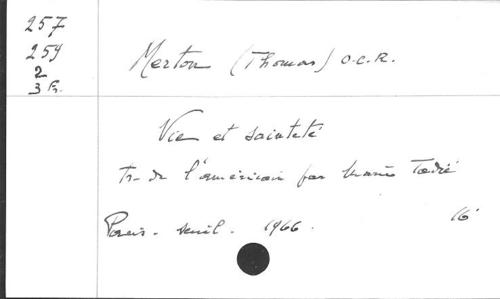 257
259
2
3 R.
Merton (Thomas) O.C.R.
Vie et sainteté
Tr. de l'américain par Marie Tadié
Paris - Seuil. 1966. 16°